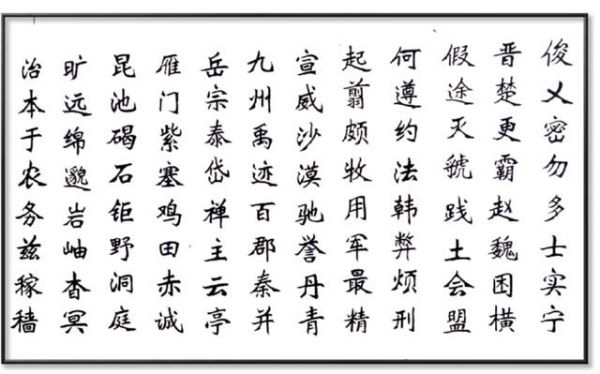 俊乂密勿多士实宁
晋楚更霸赵魏困横
假途灭虢践土会盟
何遵约法韩弊烦刑
起翦颇牧用军最精
宣威沙漠驰誉丹青
九州禹迹百郡秦并
岳宗泰岱禅主云亭
雁门紫塞鸡田赤诚
昆池碣石钜野洞庭
旷远绵邈岩岫杳冥
治本于农务兹稼穑